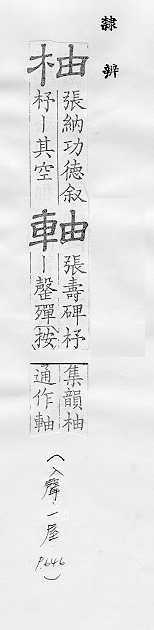 隸辨
柚
張納功德叙
杼丨其空
軸
張壽碑杼
丨罄殫按
集韻柚
通作軸
(入聲·一屋 P.646)